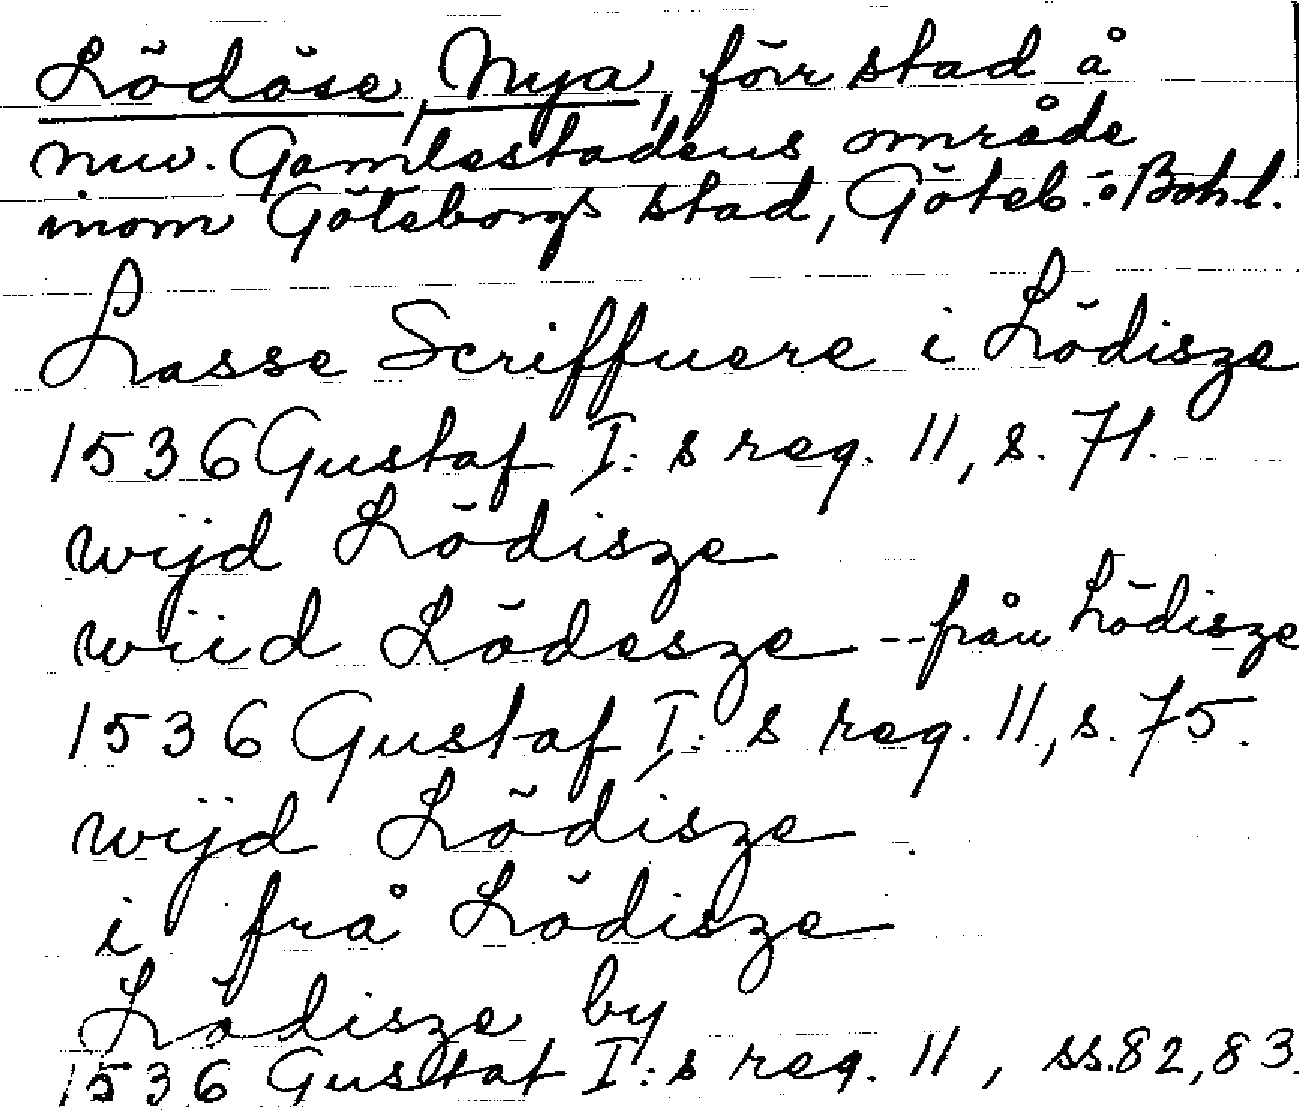 Lödöse, Nya, förr stad å
nuv. Gamlestadens område
inom Göteborgs stad, Göteb. o Boh. l.
Lasse Scriffuere i Lödisze
1536 Gustaf I: s reg. 11, s. 71.
wijd Lödisze
wiid Lödesze -- från Lödisze
1536 Gustaf I: s reg. 11, s. 75.
wijd Lödisze
i frå Lödisze
Lödisze by
1536 Gustaf I: s reg. 11, ss. 82, 83.